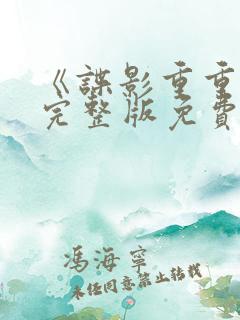 《諜影重重
完整版免費
馮海寧
未經同意禁止轉載